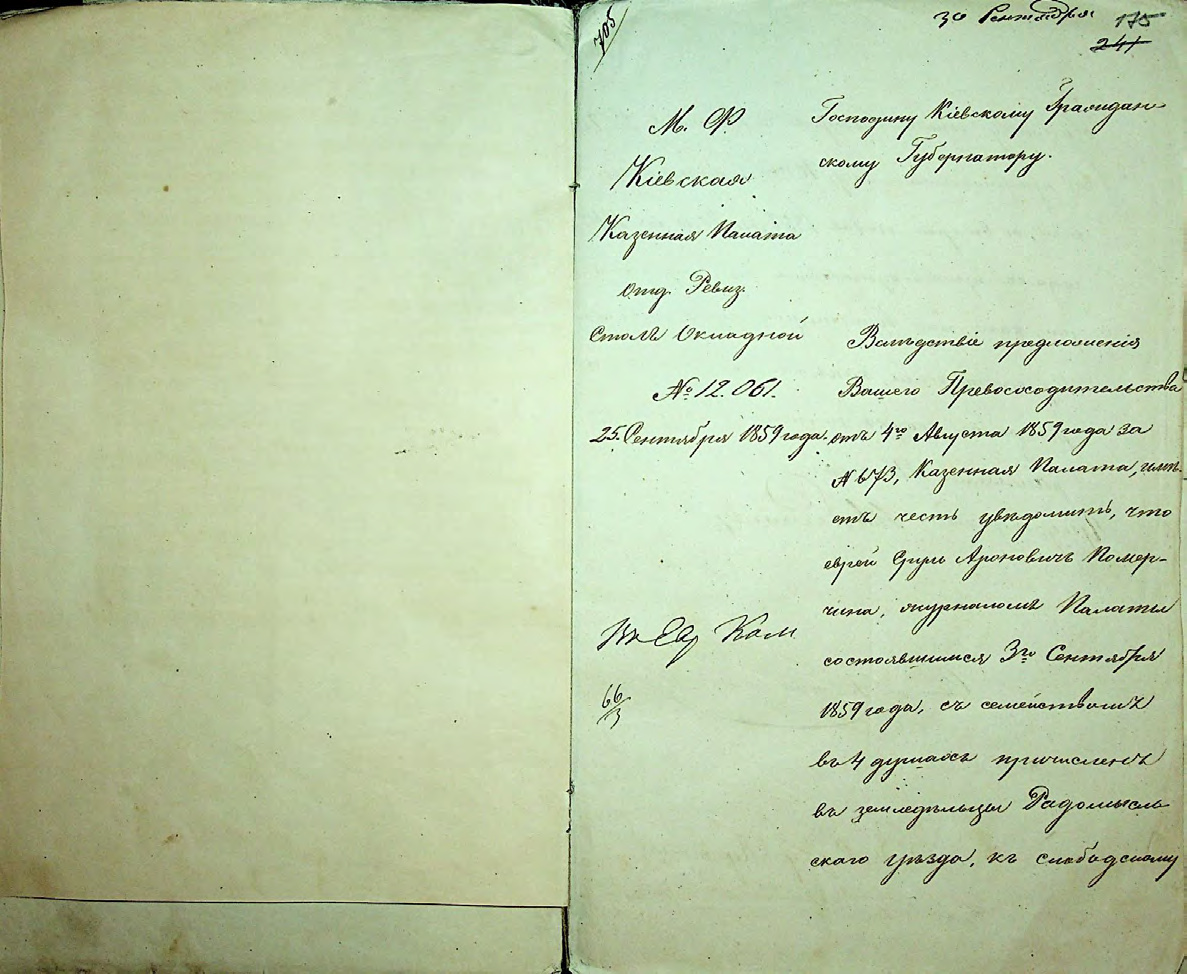 705
30 Сентября 175
241
М. Ф.
Кіевская
Казенная Палата
Отд. Ревиз.
Столъ Окладной
№ 12.061.
25. Сентября 1859 года.
66/3
Господину Кіевскому Граждан-
скому Губернатору.
Вслѣдствіе предложенія
Вашего Превосходительства
отъ 4го Августа 1859 года за
№ 673, Казенная Палата, имѣ-
етъ честь увѣдомить, что
еврей Сруль Ароновичъ Помер-
чина, журналомъ Палаты
состоявшимся 3го Сентября
1859 года, съ семействомъ
въ 4 душахъ причисленъ
въ земледѣльцы Радомысль-
скаго уѣзда, къ слободскому